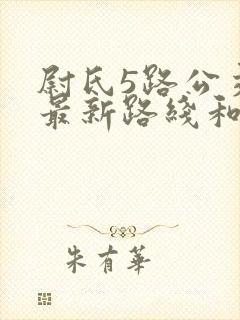 尉氏5路公
最新路綫和
朱有華